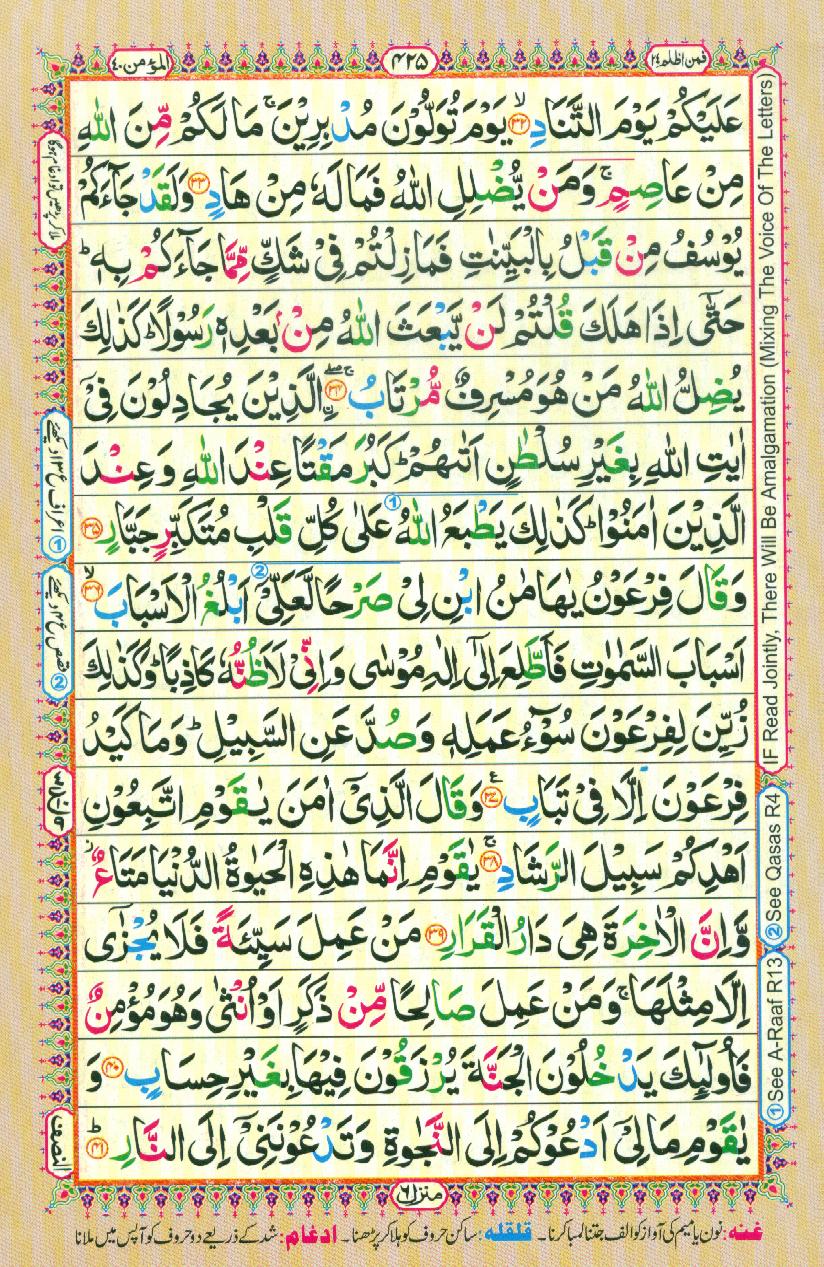 فمن اظلم ۲۴
۴۲۵
المؤمن ۴۰
عَلَيْكُمْ يَوْمَ التَّنَادِ ۙ﴿۳۲﴾ يَوْمَ تُوَلُّوْنَ مُدْبِرِيْنَ ۚ مَا لَكُمْ مِّنَ اللّٰهِ
مِنْ عَاصِمٍ ۚ وَمَنْ يُّضْلِلِ اللّٰهُ فَمَا لَهٗ مِنْ هَادٍ ﴿۳۳﴾ وَلَقَدْ جَآءَكُمْ
يُوْسُفُ مِنْ قَبْلُ بِالْبَيِّنٰتِ فَمَا زِلْتُمْ فِيْ شَكٍّ مِّمَّا جَآءَكُمْ بِهٖ ؕ
حَتّٰۤى اِذَا هَلَكَ قُلْتُمْ لَنْ يَّبْعَثَ اللّٰهُ مِنْۢ بَعْدِهٖ رَسُوْلًا ؕ كَذٰلِكَ
يُضِلُّ اللّٰهُ مَنْ هُوَ مُسْرِفٌ مُّرْتَابُ ۚۖ﴿۳۴﴾ اۨلَّذِيْنَ يُجَادِلُوْنَ فِيْۤ
اٰيٰتِ اللّٰهِ بِغَيْرِ سُلْطٰنٍ اَتٰىهُمْ ؕ كَبُرَ مَقْتًا عِنْدَ اللّٰهِ وَعِنْدَ
الَّذِيْنَ اٰمَنُوْا ؕ كَذٰلِكَ يَطْبَعُ اللّٰهُ ① عَلٰى كُلِّ قَلْبِ مُتَكَبِّرٍ جَبَّارٍ ﴿۳۵﴾
وَقَالَ فِرْعَوْنُ يٰهَامٰنُ ابْنِ لِيْ صَرْحًا ② لَّعَلِّيْۤ اَبْلُغُ الْاَسْبَابَ ۙ﴿۳۶﴾
اَسْبَابَ السَّمٰوٰتِ فَاَطَّلِعَ اِلٰۤى اِلٰهِ مُوْسٰى وَاِنِّيْ لَاَظُنُّهٗ كَاذِبًا ؕ وَكَذٰلِكَ
زُيِّنَ لِفِرْعَوْنَ سُوْٓءُ عَمَلِهٖ وَصُدَّ عَنِ السَّبِيْلِ ؕ وَمَا كَيْدُ
فِرْعَوْنَ اِلَّا فِيْ تَبَابٍ ﴿۳۷﴾ وَقَالَ الَّذِيْۤ اٰمَنَ يٰقَوْمِ اتَّبِعُوْنِ
اَهْدِكُمْ سَبِيْلَ الرَّشَادِ ۚ﴿۳۸﴾ يٰقَوْمِ اِنَّمَا هٰذِهِ الْحَيٰوةُ الدُّنْيَا مَتَاعٌ ۫
وَّاِنَّ الْاٰخِرَةَ هِيَ دَارُ الْقَرَارِ ﴿۳۹﴾ مَنْ عَمِلَ سَيِّئَةً فَلَا يُجْزٰۤى
اِلَّا مِثْلَهَا ۚ وَمَنْ عَمِلَ صَالِحًا مِّنْ ذَكَرٍ اَوْ اُنْثٰى وَهُوَ مُؤْمِنٌ
فَاُولٰٓئِكَ يَدْخُلُوْنَ الْجَنَّةَ يُرْزَقُوْنَ فِيْهَا بِغَيْرِ حِسَابٍ ﴿۴۰﴾ وَ
يٰقَوْمِ مَا لِيْۤ اَدْعُوْكُمْ اِلَى النَّجٰوةِ وَتَدْعُوْنَنِيْۤ اِلَى النَّارِ ؕ﴿۴۱﴾
منزل ۶
غنہ: نون یا میم کی آواز کو الف جتنا لمبا کرنا۔ قلقلہ: ساکن حروف کو ہلا کر پڑھنا۔ ادغام: شد کے ذریعے دو حروف کو آپس میں ملانا
IF Read Jointly, There Will Be Amalgamation (Mixing The Voice Of The Letters)
② See Qasas R4
① See A-Raaf R13
① اعراف ع ۱۳ دیکھئے
② قصص ع ۴ دیکھئے
النصف